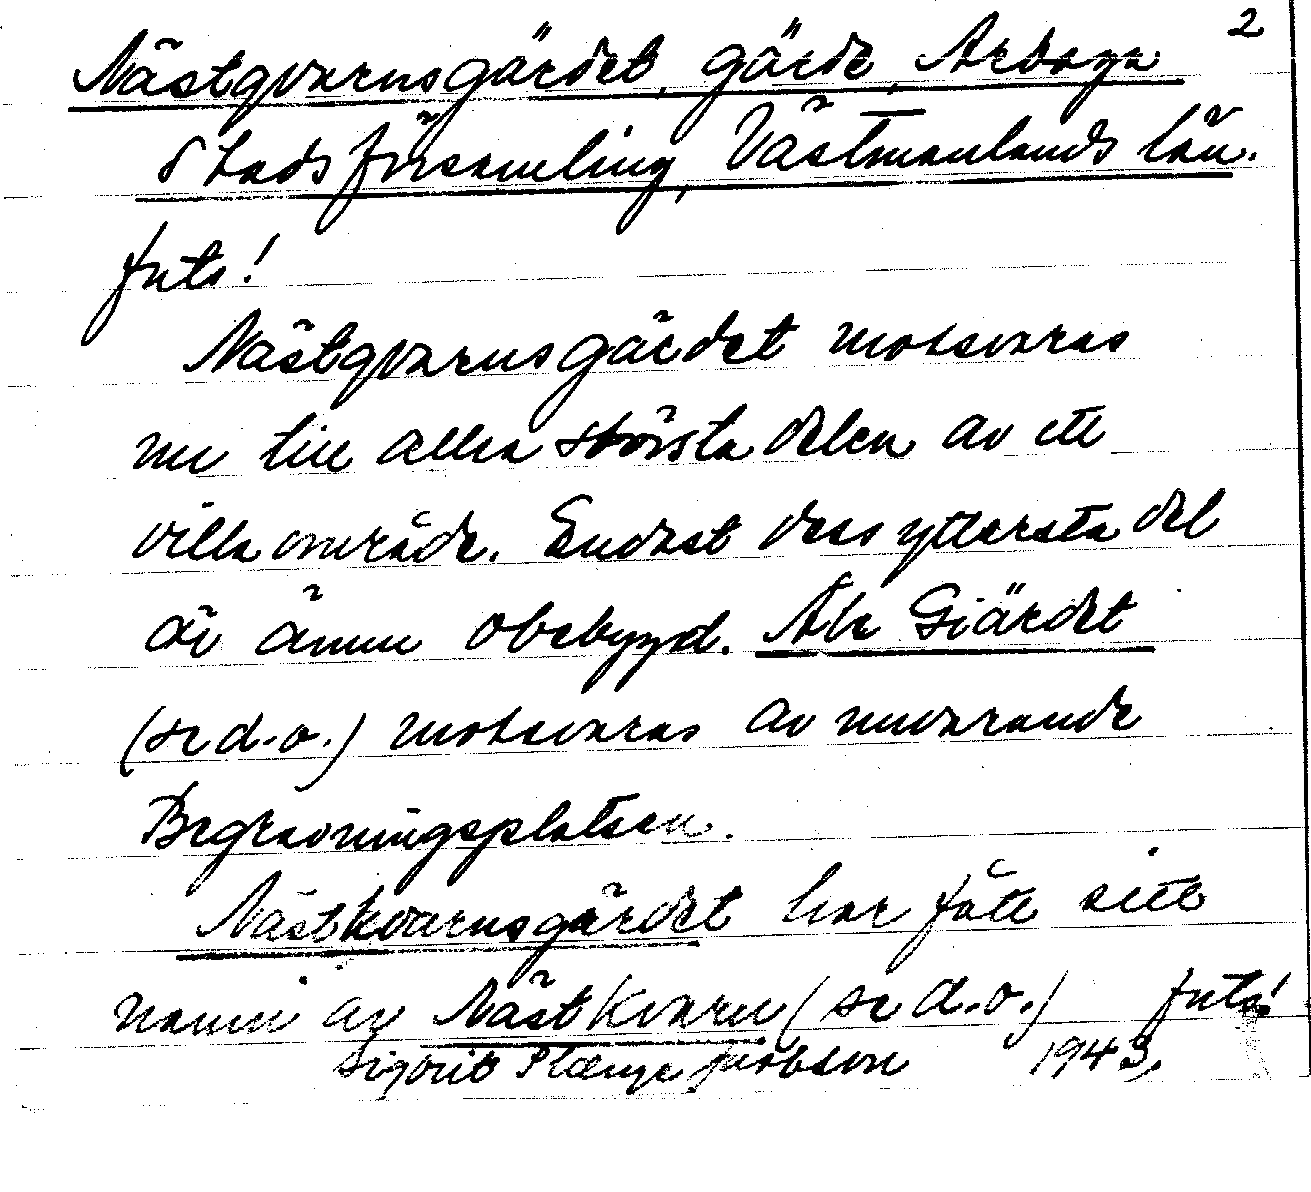 2
Nästqvarnsgärdet, gärde, Arboga
stadsförsamling, Västmanlands län.
forts!
Nästqvarnsgärdet motsvaras
nu till allra största delen av ett
villaområde. Endast dess yttersta del
är ännu obebyggd. Åke Giärdet
(se d.o.) motsvaras av nuvarande
Begravningsplatsen.
Nästkvarnsgärdet har fått sitt
namn av Näst Kvarn (se d.o.) forts!
Sigbrit Plænge Jacobson 1943.